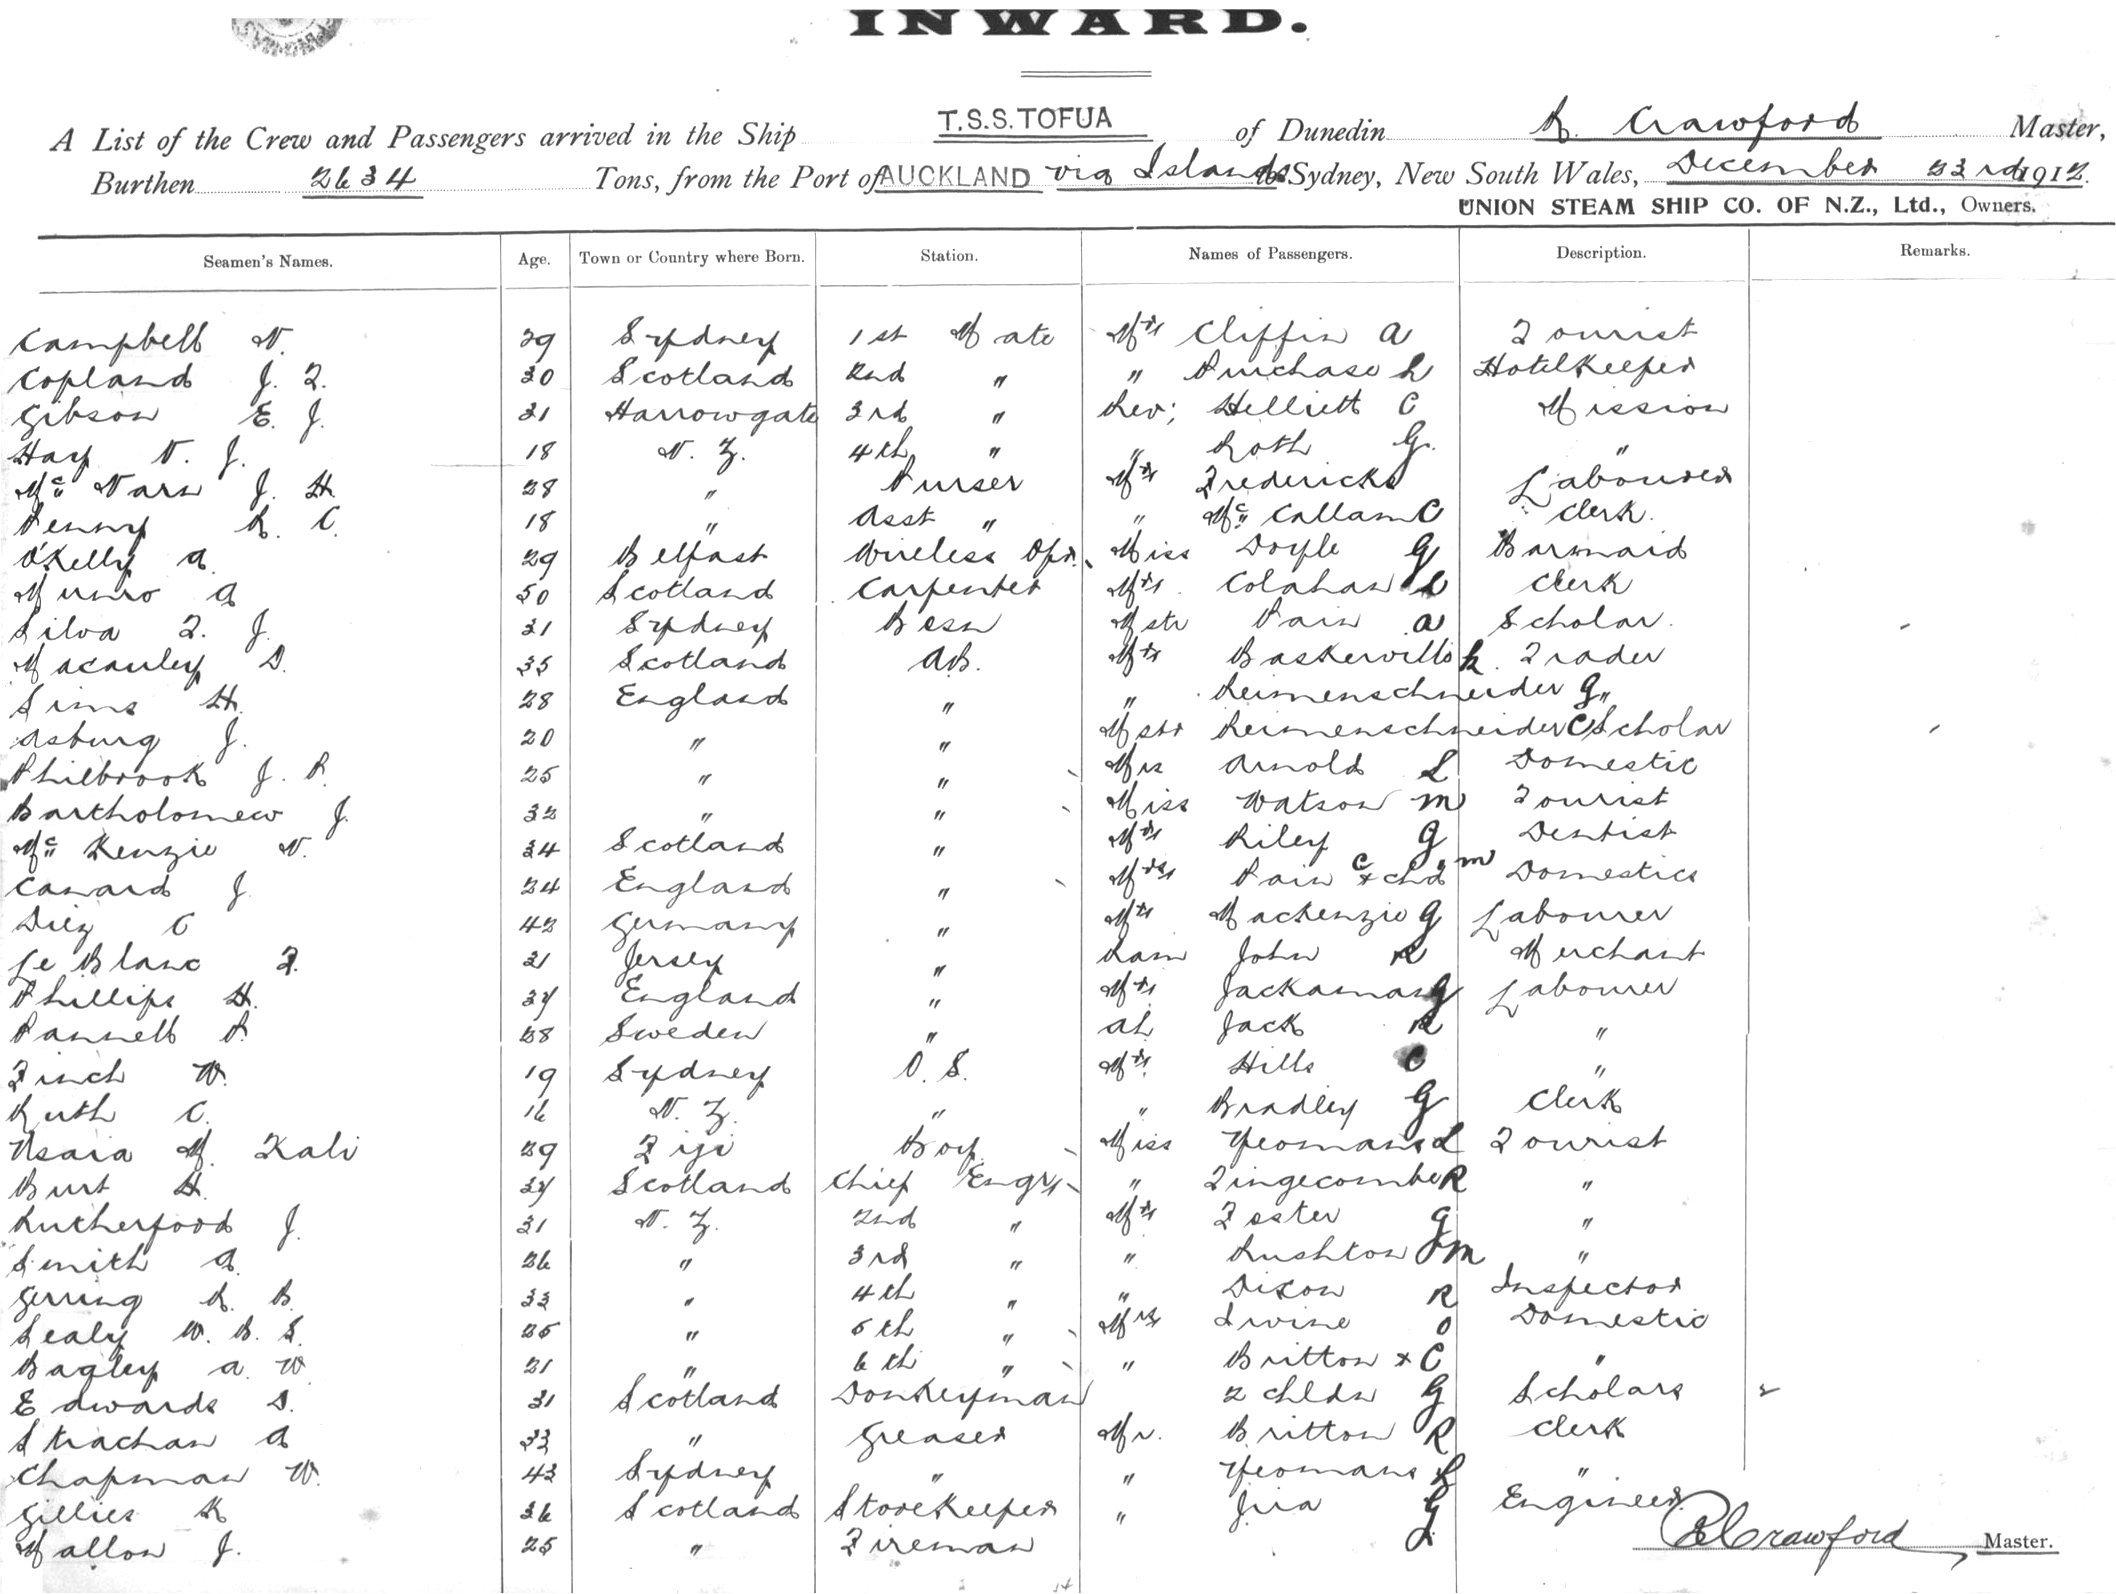 INWARD.
A List of the Crew and Passengers arrived in the Ship T.S.S. TOFUA of Dunedin R. Crawford Master,
Burthen 2634 Tons, from the Port of AUCKLAND via Islands to Sydney, New South Wales, December 23rd 1912.
UNION STEAM SHIP CO. OF N.Z., Ltd., Owners.
Seamen's Names. Age. Town or Country where Born. Station. Names of Passengers. Description. Remarks.
Campbell N. 29 Sydney 1st Mate Mr Cliffin A Tourist
Copland J. F. 30 Scotland 2nd " " Purchase L Hotelkeeper
Gibson E. J. 31 Harrowgate 3rd " Rev; Helliett C Mission
Hay N. J. 18 N. Z. 4th " " Roth G. "
Mc Narn J. H. 28 " Purser Mr Fredericks Labourer
Penny R. C. 18 " Asst " " Mc Callam C Clerk.
O'Kelly A. 29 Belfast Wireless Opr. Miss Doyle G Barmaid
Munro A 50 Scotland Carpenter Mr. Colahan L Clerk
Silva F. J. 31 Sydney Bosn Mstr Pain A Scholar.
Macauley D. 35 Scotland AB. Mr Baskerville R. Trader
Sims H. 28 England " " Reimenschneider G "
Asburg J. 20 " " Mstr Reimenschneider C Scholar
Philbrook J. P. 25 " " Mrs Arnold L Domestic
Bartholomew J. 32 " " Miss Watson M Tourist
Mc Kenzie N. 34 Scotland " Mr Riley G Dentist
Canard J. 24 England " Mrs Pain C & chd M Domestics
Diez C 42 Germany " Mr Mackenzie G Labourer
Le Blanc F. 21 Jersey " Ram John R Merchant
Phillips H. 34 England " Mr Jackaman G Labourer
Pannell P. 28 Sweden " Ah Jack R "
Finch W. 19 Sydney O. S. Mr. Hills C "
Ruth C. 16 N. Z. " " Bradley G Clerk
Usaia M. Kali 29 Fiji Boy Miss Yeomans L Tourist
Burt H. 34 Scotland Chief Engr " Tingecombe R "
Rutherford J. 31 N. Z. 2nd " Mr Foster G "
Smith A. 26 " 3rd " " Rushton G M "
Gerring R. B. 33 " 4th " " Dixon R Inspector
Sealy W. B. S. 25 " 5th " Mrs Irvine O Domestic
Bagley A. W. 21 " 6th " " Britton & C "
Edwards D. 31 Scotland Donkeyman 2 chldn G Scholars
Strachan A 33 " Greaser Mr. Britton R Clerk
Chapman W. 43 Sydney " " Yeomans R "
Gillies K 36 Scotland Storekeeper " Jira G Engineer.
Mallon J. 25 " Fireman L
R Crawford Master.